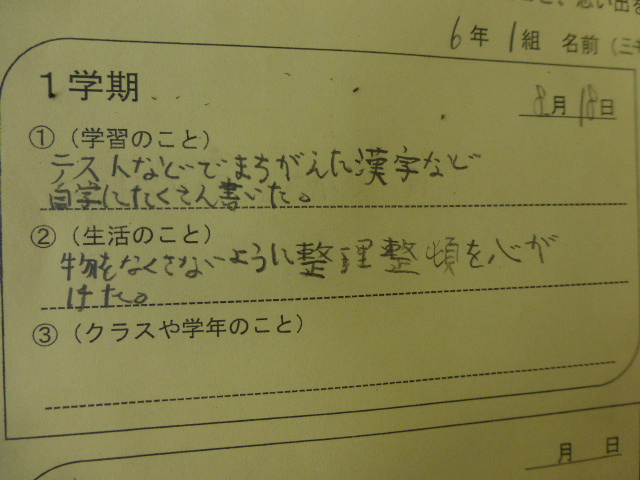 思い出を
6年 1組 名前(三
1学期
8月18日
①(学習のこと)
テストなどでまちがえた漢字など
自学にたくさん書いた。
②(生活のこと)
物をなくさないように整理整頓を心が
けた。
③(クラスや学年のこと)
月 日